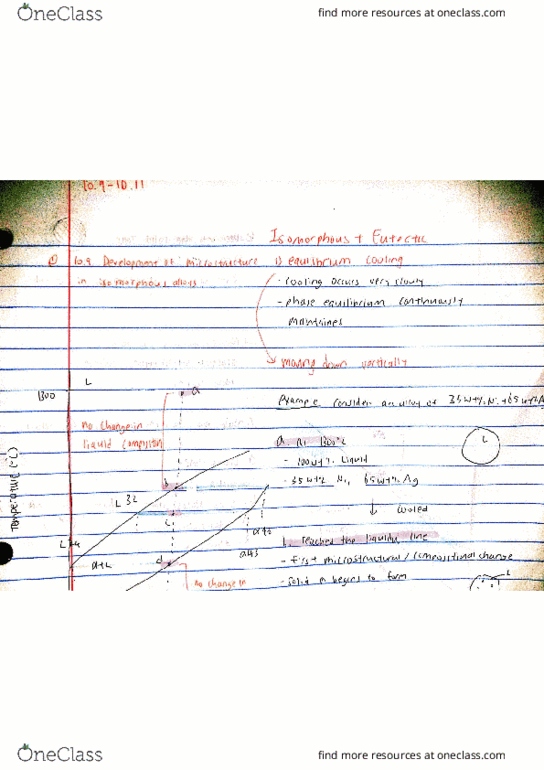 OneClass
find more resources at oneclass.com
10.9-10.11
Isomorphous + Eutectic
10.9 Development of microstructure
in isomorphous alloys
1) equilibrium cooling
- cooling occurs very slowly
- phase equilibrium continuously
maintaines
moving down vertically
Example: consider an alloy of 35 wt% Ni +65 wt%
1300
L
a
no change in
liquid
Temperature (°C)
b
L 32
c
L
α+L
d
α43
no change in
a. At 1300°C
- 100wt% Liquid
- 35wt% Ni, 65wt% Ag
L
↓ cooled
b. reached the liquidus line
- first microstructural / compositional change
- solid α begins to form
L
OneClass
find more resources at oneclass.com